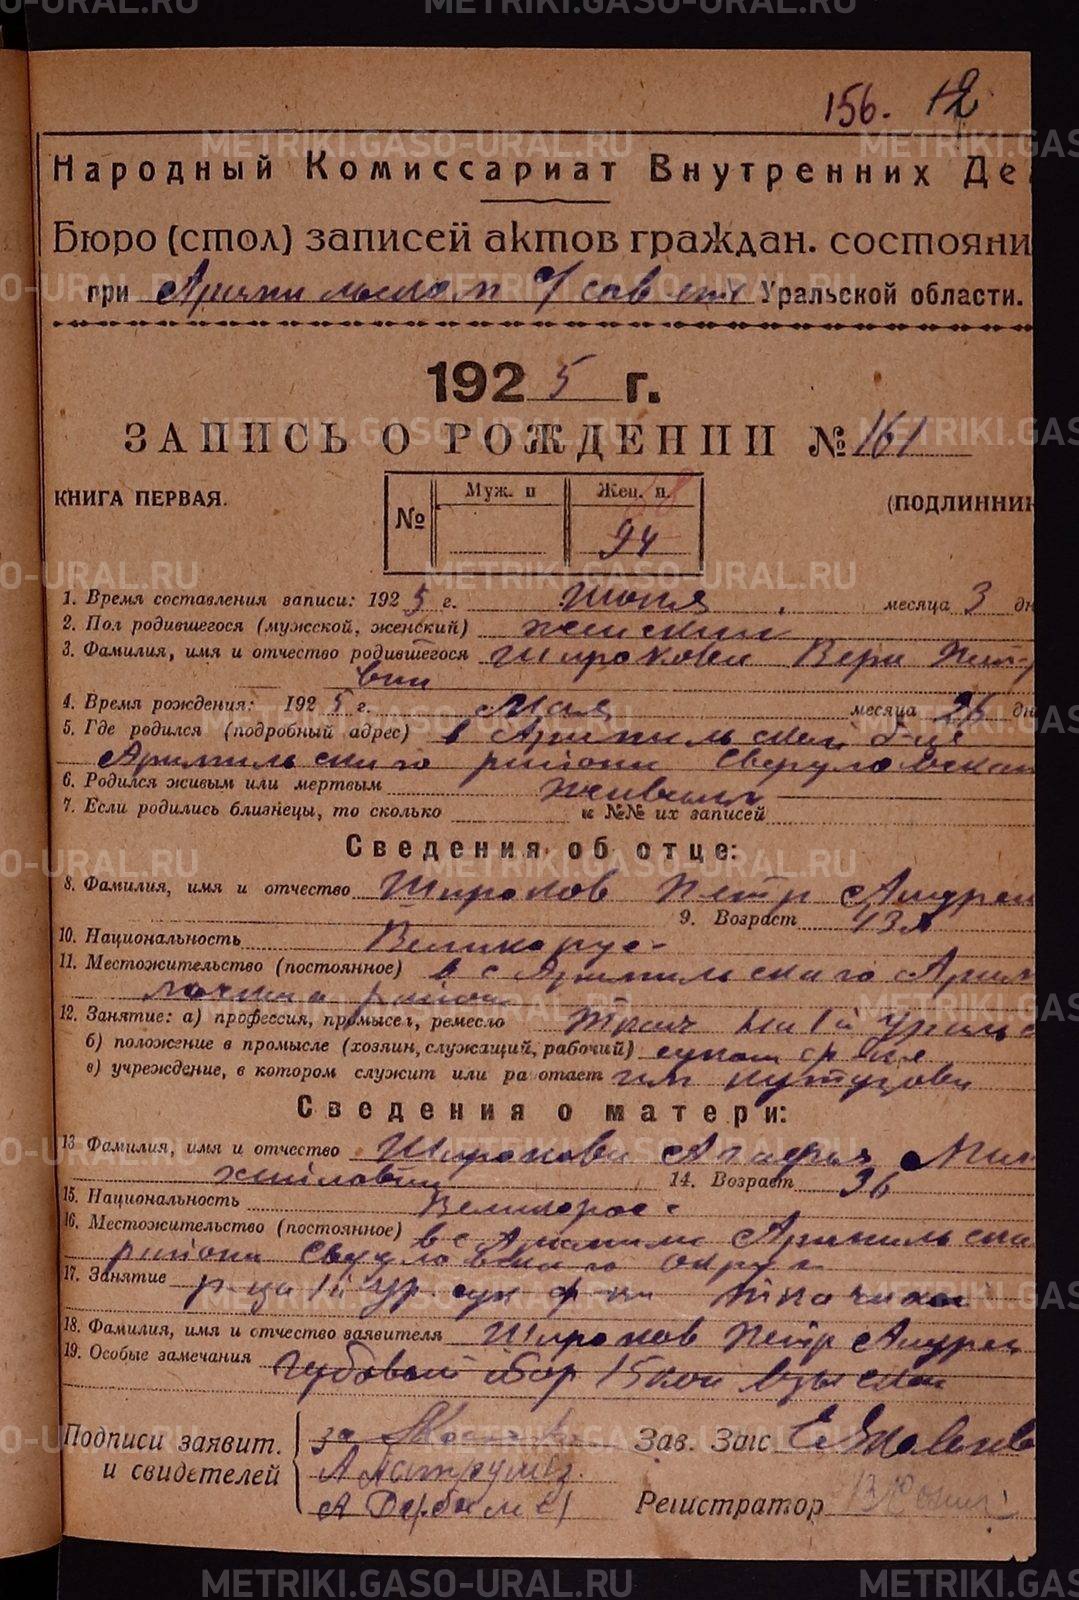 156. 12
Народный Комиссариат Внутренних Де
Бюро (стол) записей актов граждан. состояни
при Арамильском с/совете Уральской области.
1925 г.
ЗАПИСЬ О РОЖДЕНИИ № 161
КНИГА ПЕРВАЯ. (ПОДЛИННИК
№ Муж. п Жен. п.
94
1. Время составления записи: 1925 г. июня месяца 3 дн
2. Пол родившегося (мужской, женский) женский
3. Фамилия, имя и отчество родившегося Широкова Вера Пет-
вна
4. Время рождения: 1925 г. Мая месяца 26 дн
5. Где родился (подробный адрес) в Арамильской б-це
Арамильского района Свердловскаго
6. Родился живым или мертвым живым
7. Если родились близнецы, то сколько и №№ их записей
Сведения об отце:
8. Фамилия, имя и отчество Широков Петр Андреи
9. Возраст 43 л
10. Национальность Великорус-
11. Местожительство (постоянное) в с Арамильскаго Арам
района
12. Занятие: а) профессия, промысел, ремесло Ткач на 1й Уральс
б) положение в промысле (хозяин, служащий, рабочий) сукон ф-ке
в) учреждение, в котором служит или работает
Сведения о матери:
13 Фамилия, имя и отчество Широкова Агафья Ми
хайловна 14. Возраст 36
15. Национальность Великорос-
16. Местожительство (постоянное) в с Арамили Арамильска
района Свердловскаго округа
17. Занятие р-ца 1й Ур. сук ф-ки ткачиха
18. Фамилия, имя и отчество заявителя Широков Петр Андреи
19. Особые замечания сбор 15 коп взыскан
Подписи заявит. за Зав. Загс
и свидетелей
Регистратор
METRIKI.GASO-URAL.RU